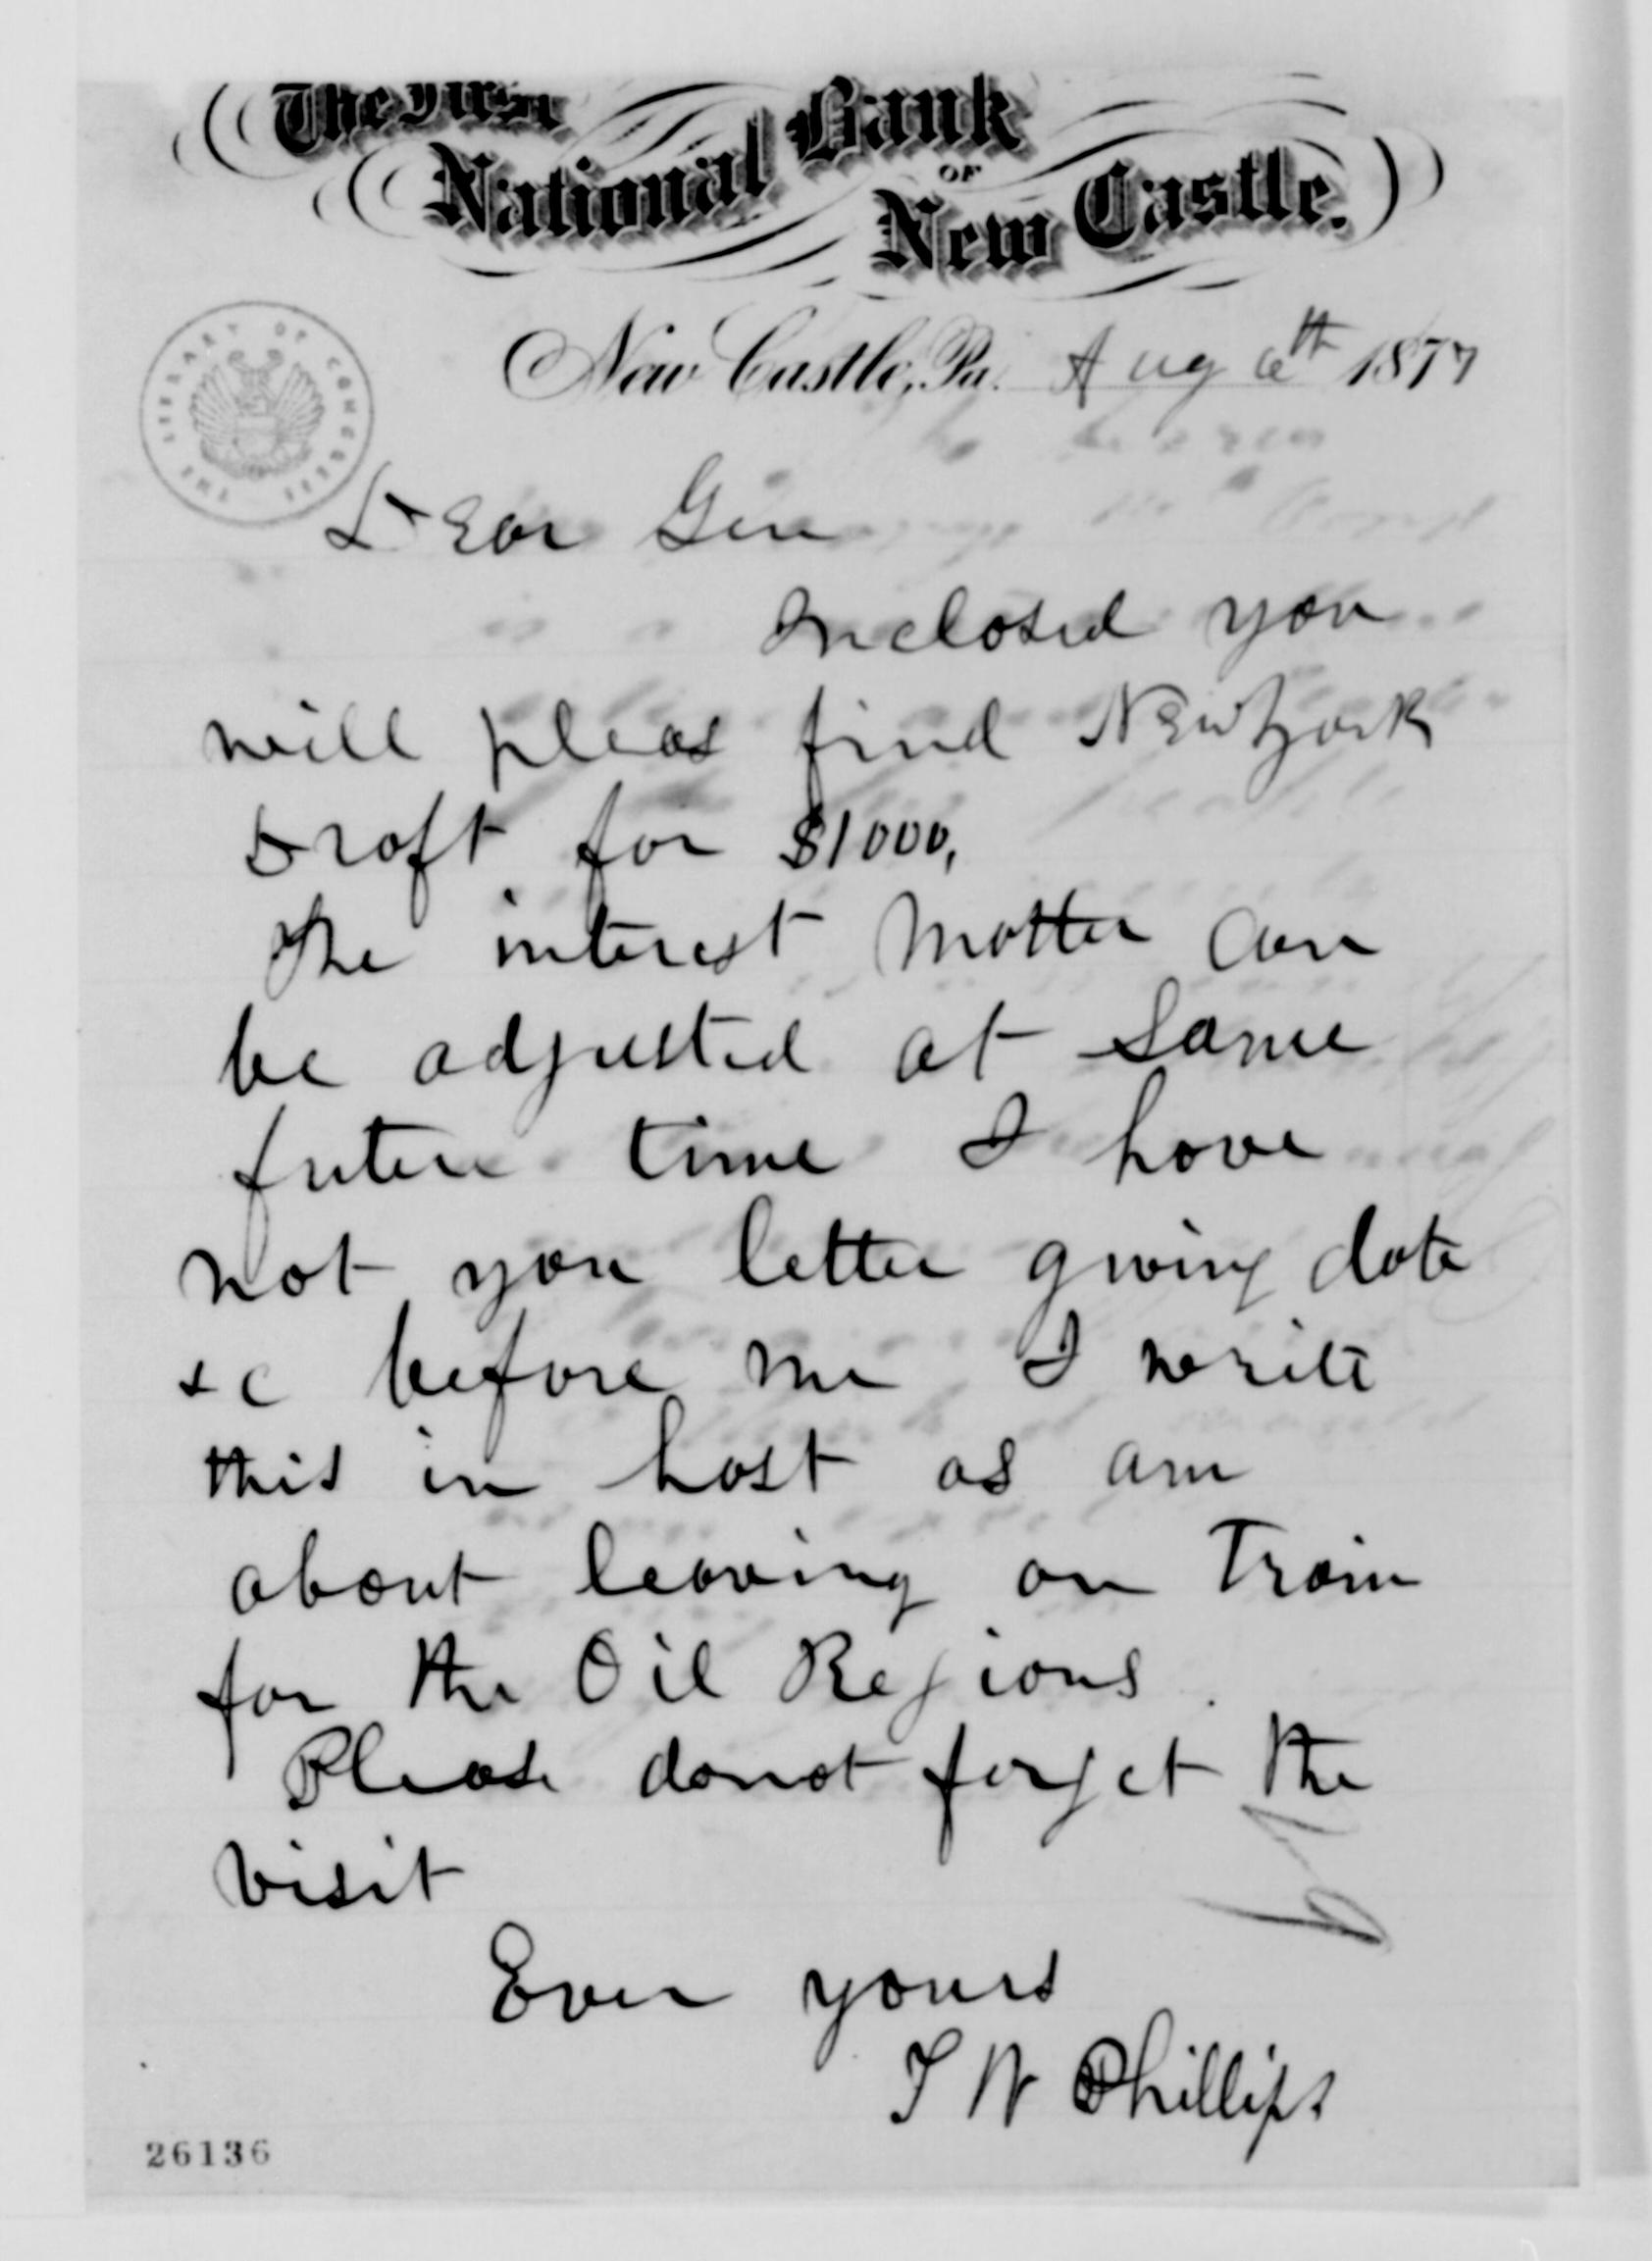 The First
National Bank
OF
New Castle.
THE LIBRARY OF CONGRESS
New Castle, Pa. Aug 6th 1877
Dear Gen
Inclosed you
will pleas find New York
Draft for $1000,
The interest Matter Can
be adjusted at Some
future time I have
not your letter giving date
&c before me I write
this in hast as am
about leaving on Train
for the Oil Regions.
Please donot forget the
visit
Ever yours
T W Phillips
26136